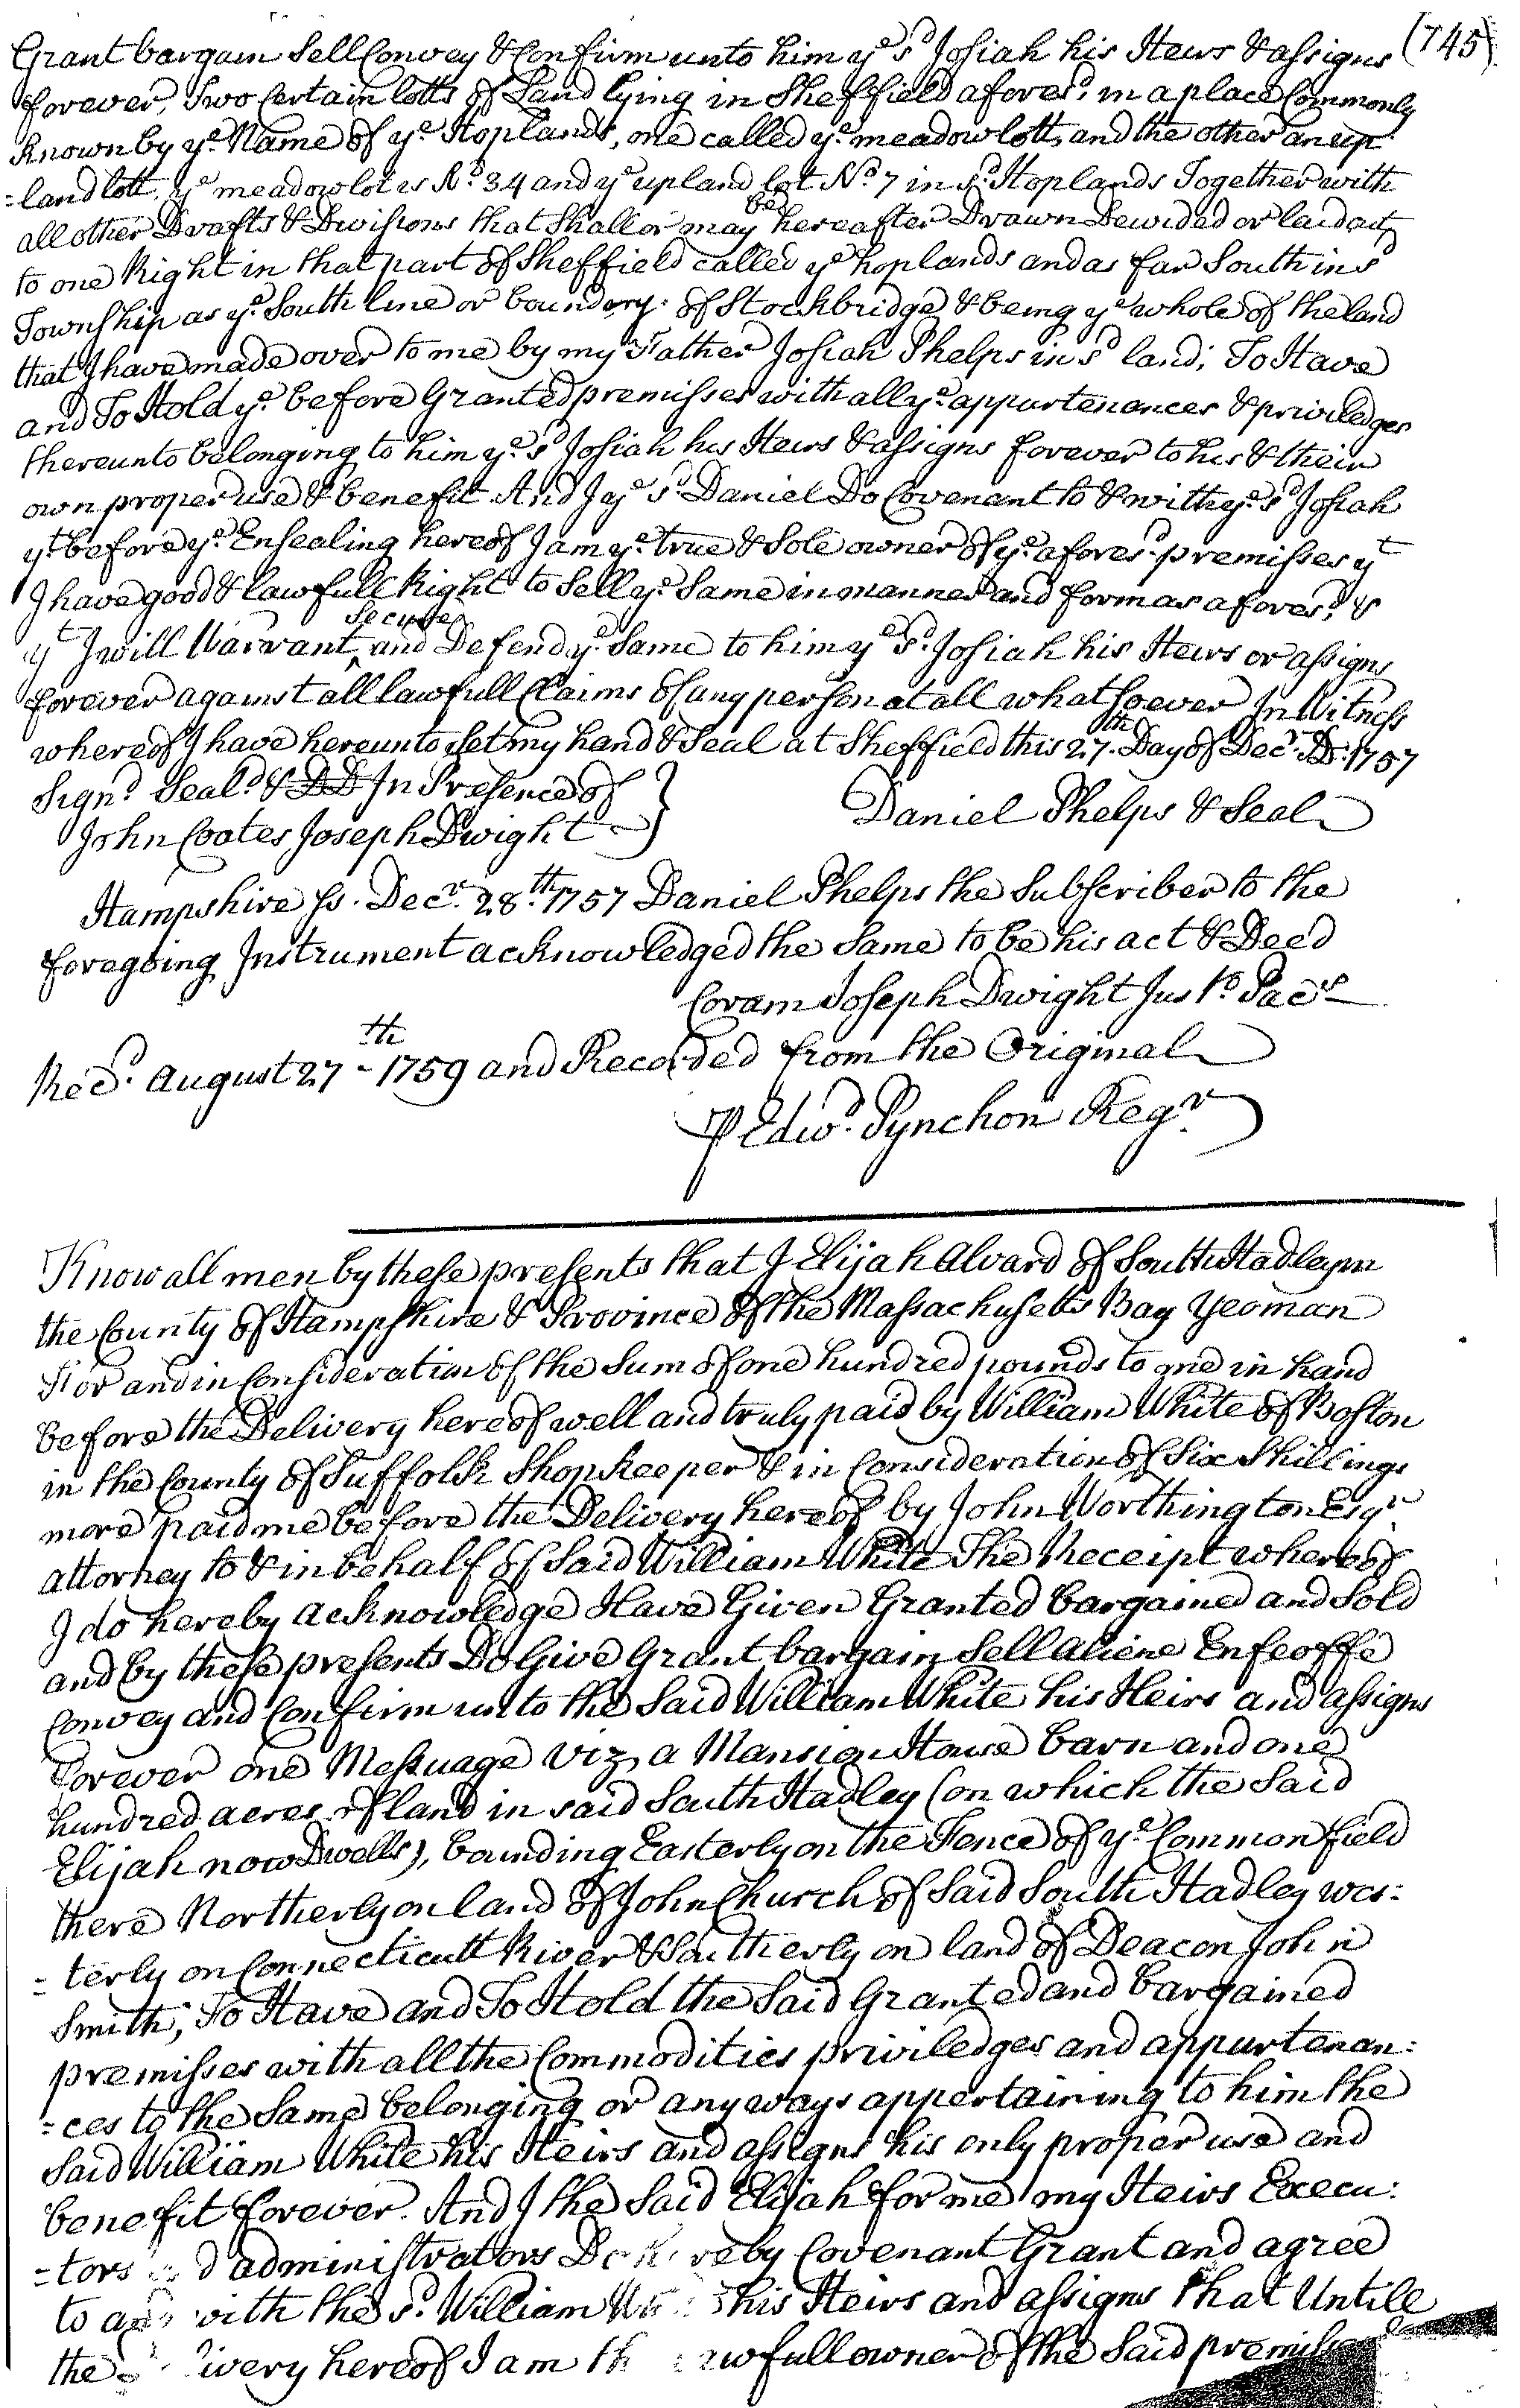 (745)
Grant bargain Sell Convey & Confirm unto him ye sd Josiah his Heirs & assigns
forever, Two Certain lotts of Land lying in Sheffield aforesd, in a place Commonly
known by ye Name of ye Hoplands, one called ye meadow lott, and the other an up
=land lott, ye meadow lot is No 34 and ye upland lot No 7 in sd Hoplands Together with
all other Drafts & Divisions that Shall or may be hereafter Drawn Dewided or laid out
to one Right in that part of Sheffield called ye hoplands and as far South in sd
Township as ye South line or boundery of Stockbridge & being ye whole of the land
that I have made over to me by my Father Josiah Phelps in sd land; To Have
and To Hold ye before Granted premisses with all ye appurtenances & priviledges
thereunto belonging to him ye sd Josiah his Heirs & assigns forever to his & their
own proper use & benefit And I ye sd Daniel Do Covenant to & with ye sd Josiah
yt before ye Ensealing hereof I am ye true & Sole owner of ye aforesd premisses yt
I have good & lawfull Right to Sell ye Same in manner and form as aforesd, &
yt I will Warrant, Secure and Defend ye Same to him ye sd Josiah his Heirs or assigns
forever against all lawfull Claims of any person at all whatsoever In Witness
whereof I have hereunto Set my hand & Seal at Sheffield this 27th Day of Decr AD. 1757
Signd Seald & DD In Presence of
John Coates, Joseph Dwight
Daniel Phelps & Seal
Hampshire ss. Decr 28th 1757 Daniel Phelps the Subscriber to the
foregoing Instrument acknowledged the Same to be his act & Deed
Coram Joseph Dwight Justo Pacs
Recd. August 27th - 1759 and Recorded from the Original
P Edwd Pynchon Regr
Know all men by these presents that I Elijah Alvard of South Hadley in
the County of Hampshire & Province of the Massachusetts Bay Yeoman
For and in Consideration of the Sum of one hundred pounds to me in hand
before the Delivery hereof well and truly paid by William White of Boston
in the County of Suffolk Shopkeeper & in Consideration of Six Shillings
more paid me before the Delivery hereof by John Worthington Esqr
attorney to & in behalf of Said William White The Receipt whereof
I do hereby acknowledge Have Given Granted bargained and Sold
and by these presents Do Give Grant bargain Sell Aliene Enfeoffe
Convey and Confirm unto the Said William White his Heirs and assigns
Forever one Messuage viz, a Mansion House barn and one
hundred acres of land in said South Hadley (on which the Said
Elijah now Dwells), bounding Easterly on the Fence of ye Common field
there Northerly on land of John Church of Said South Hadley wes:
=terly on Connecticutt River & Southerly on land of Deacon John
Smith; To Have and To Hold the Said Granted and bargained
premisses with all the Commodities priviledges and appurtenan:
=ces to the Same belonging or any ways appertaining to him the
Said William White his Heirs and assigns his only proper use and
benefit forever. And I the Said Elijah for me my Heirs Execu:
=tors and administrators Do hereby Covenant Grant and agree
to and with the sd William White his Heirs and assigns that Untill
the Delivery hereof I am the lawfull owner of the Said premisses